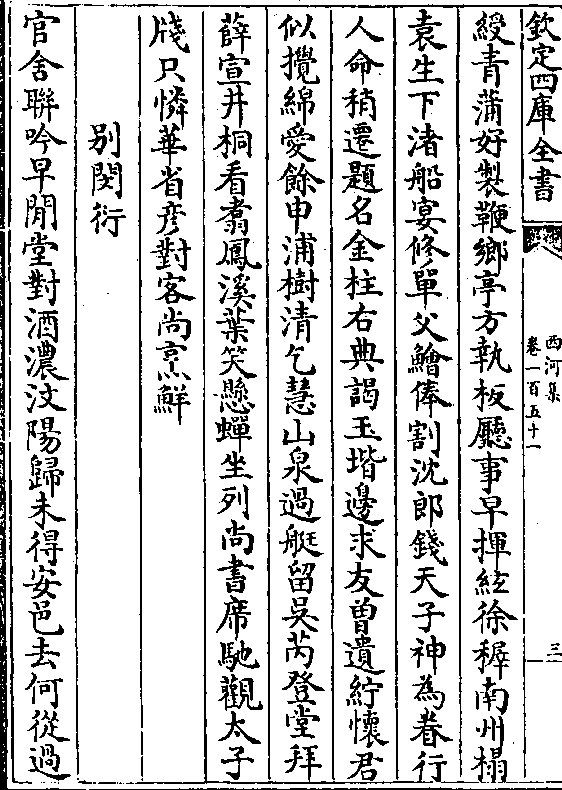 欽定四庫全書
西河集
卷一百五十一
三
綬青蒲好製鞭鄉亭方執板廳事早揮絃徐穉南州榻
袁生下渚船宴修單父鱠俸割沈郎錢天子神為眷行
人命稍遷題名金柱右典謁玉堦邊求友曽遺紵懷君
似攪綿愛餘申浦樹清乞慧山泉過艇留吳芮登堂拜
薛宣井桐看翥鳳溪葉笑懸蟬坐列尚書席馳觀太子
牋只憐華省彦對客尚烹鮮
别閔衍
官舍聨吟早閒堂對酒濃汶陽歸未得安邑去何從過